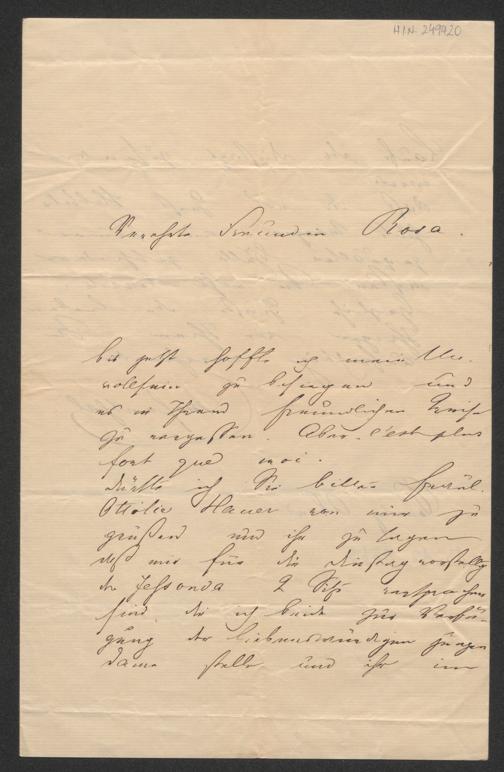 HIN 249920
Verehrte Freundin Rosa.
bis jetzt hoffte ich mein Un-
wollsein zu besiegen und
es in Ihrem freundlichen Kreise
zu vergessen. Aber c'est plus
fort que moi.
Dürfte ich Sie bitten Fräul.
Ottilie Hauer von mir zu
grüßen und ihr zu sagen
daß mir für die Dienstagvorstellg
der Jessonda 2 Sitze versprochen
sind, die ich beide zur Verfü-
gung der liebenswürdigen jungen
Dame stelle und ihr im